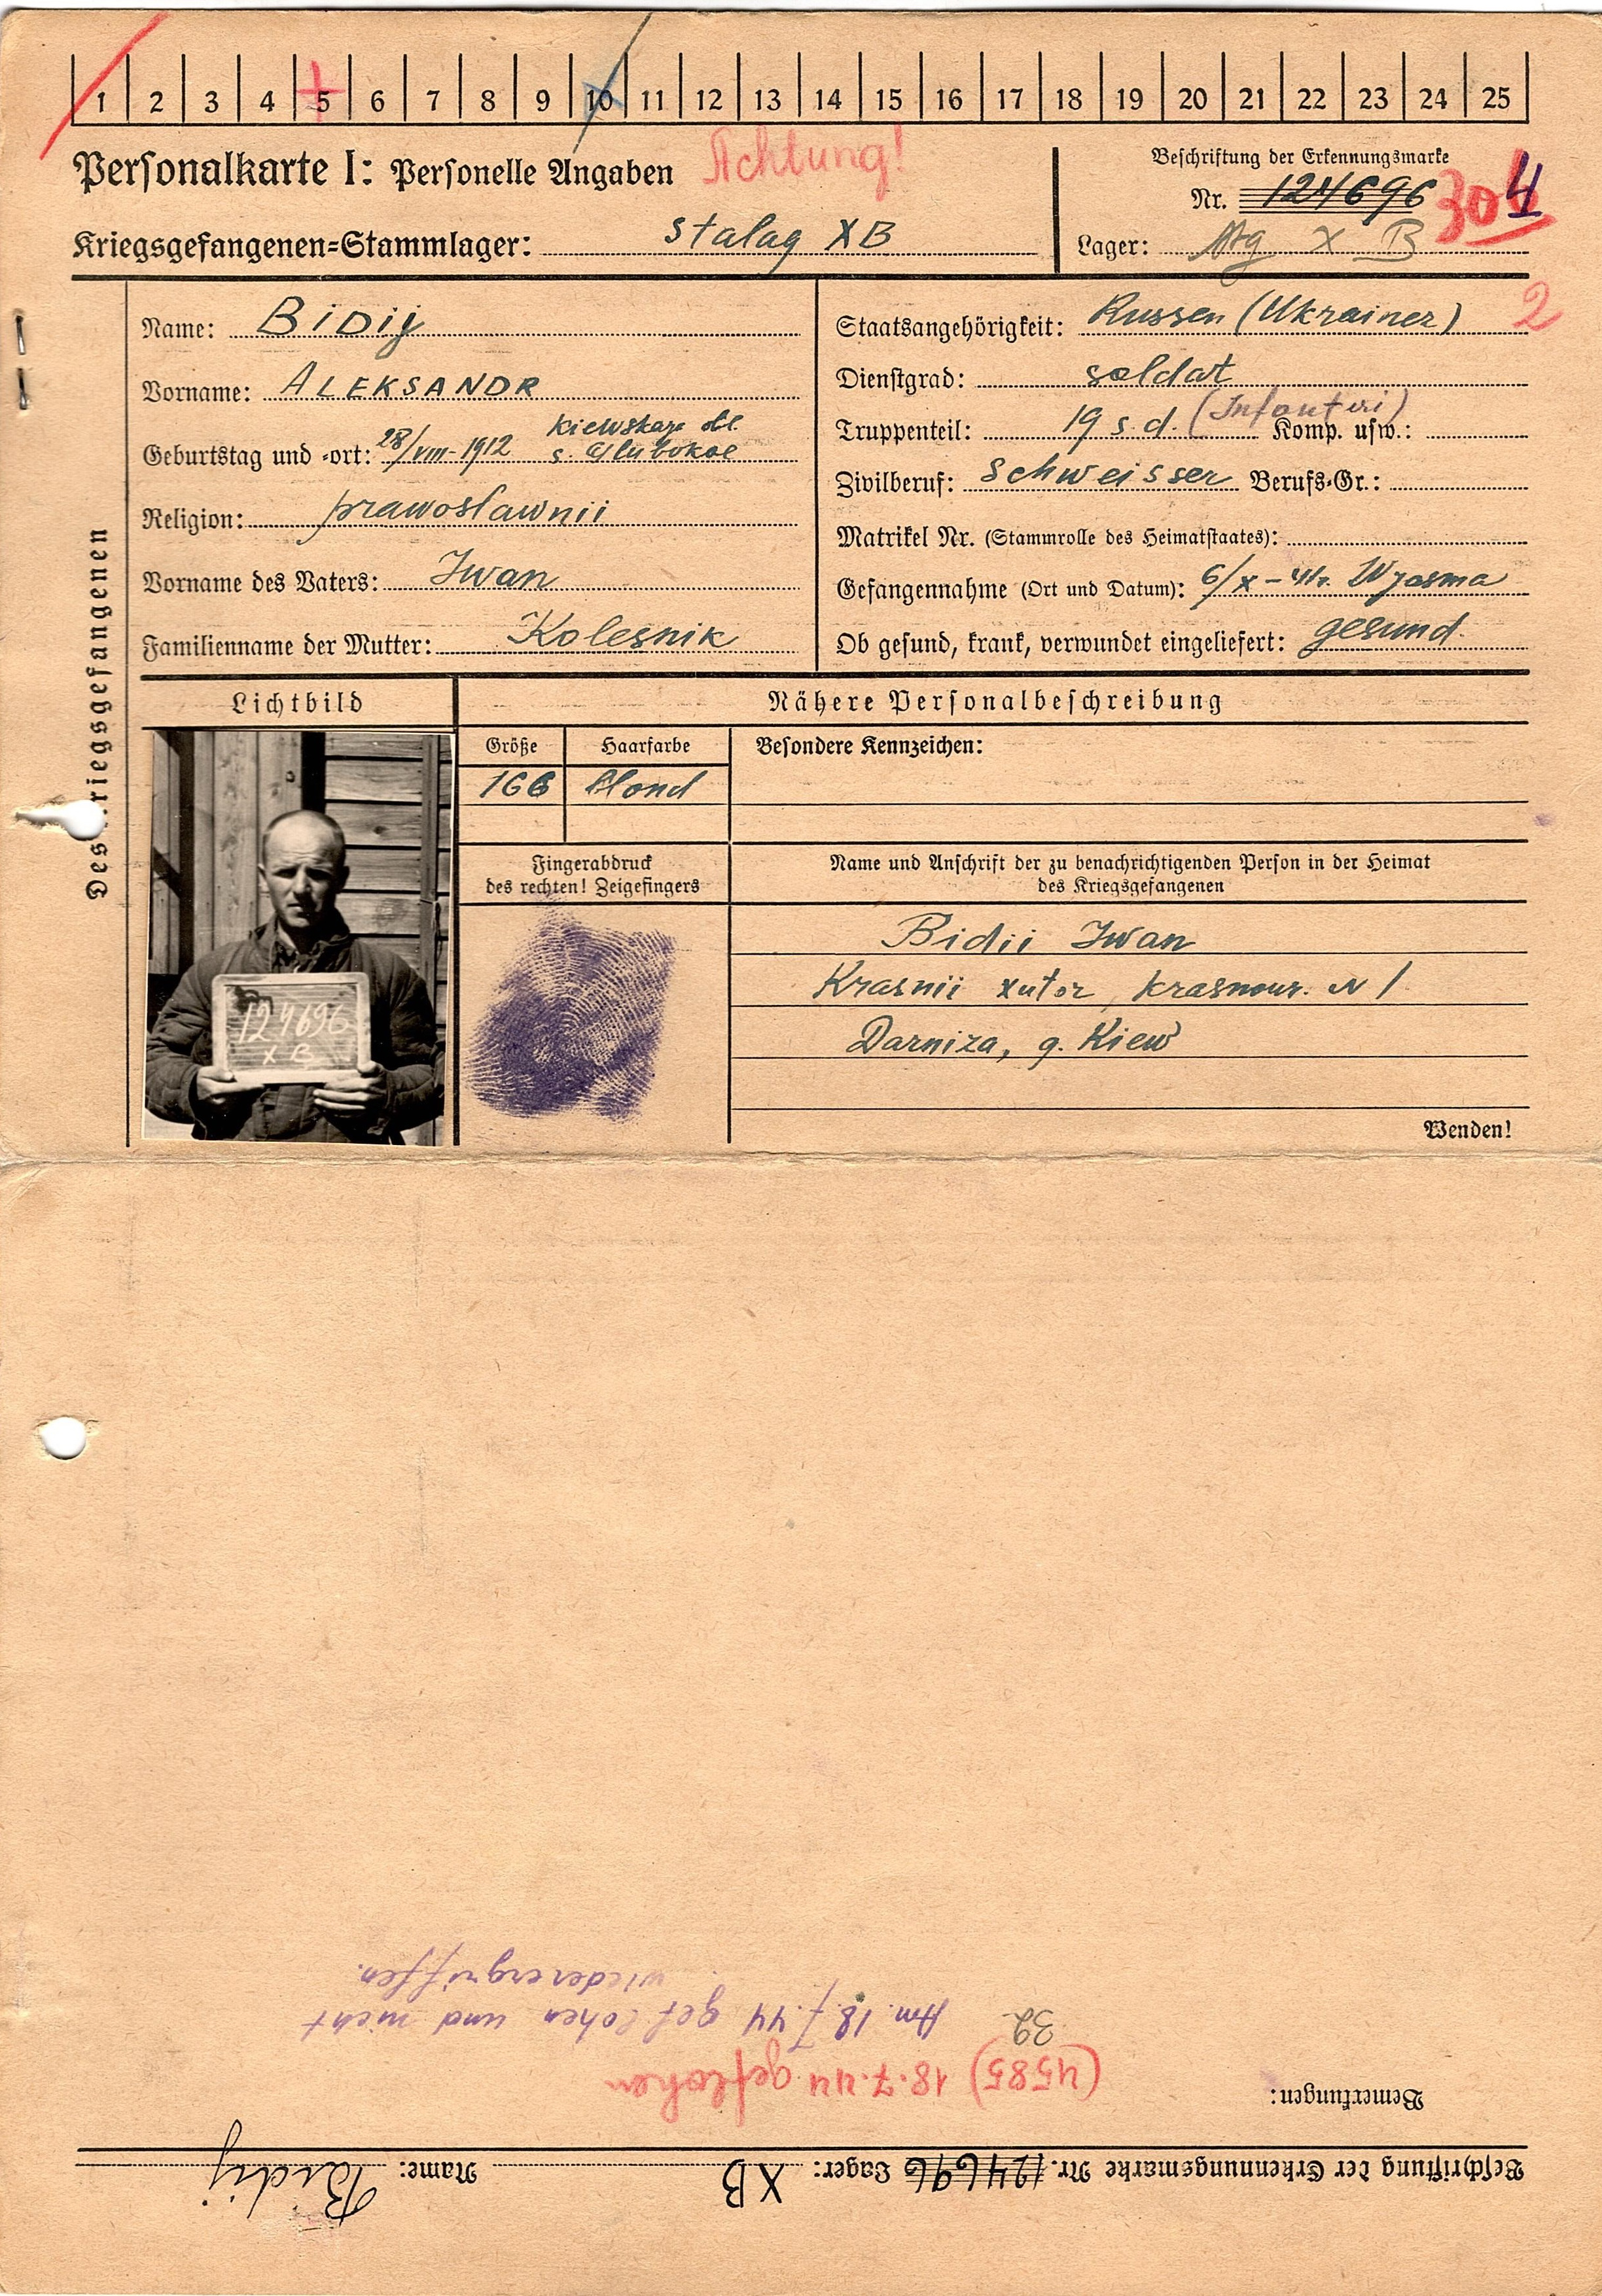 1 2 3 4 5 6 7 8 9 10 11 12 13 14 15 16 17 18 19 20 21 22 23 24 25
Personalkarte I: Personelle Angaben
Achtung!
Kriegsgefangenen=Stammlager: Stalag XB
Beschriftung der Erkennungsmarke
Nr. 124696
304
Lager: X B
2
Des Kriegsgefangenen
Name: BiDiy
Vorname: ALEKSANDR
Geburtstag und =ort: 28/VIII-1912 Kiewskaja obl. s. Glubokoe
Religion: prawosławnii
Vorname des Vaters: Iwan
Familienname der Mutter: Kolesnik
Staatsangehörigkeit: Russen (Ukrainer)
Dienstgrad: soldat
Truppenteil: 19 s.d. (Infanteri) Komp. usw.:
Zivilberuf: Schweisser Berufs=Gr.:
Matrikel Nr. (Stammrolle des Heimatstaates):
Gefangennahme (Ort und Datum): 6/X-41r. Wjasma
Ob gesund, krank, verwundet eingeliefert: gesund.
Lichtbild
Nähere Personalbeschreibung
Größe Haarfarbe Besondere Kennzeichen:
166 blond
Fingerabdruck
des rechten! Zeigefingers
Name und Anschrift der zu benachrichtigenden Person in der Heimat
des Kriegsgefangenen
Bidii Iwan
Krasnii xutor, krasnour. N 1
Darniza, g. Kiew
124696
X B
Wenden!
Beschriftung der Erkennungsmarke Nr. 124696 Lager: XB Name: Bidij
Bemerkungen:
(4585) 18.7.44 geflohen
32
Am 18.7.44 geflohen und nicht
wiederergriffen.